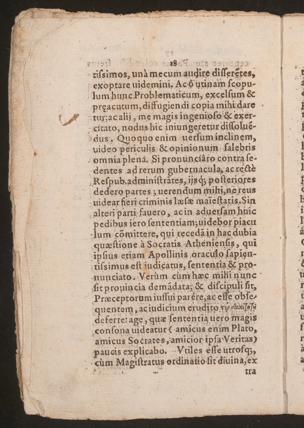 18
tissimos, unà mecum audire disserẽtes,
exoptare uidemini. Ac ô utinam scopu-
lum hunc Problematicum, excelsum &
pręacutum, diffugiendi copia mihi dare
tur: ac alij, me magis ingenioso & exer-
citato, nodus hic iniungeretur dissolué-
dus. Quoquo enim uersum inclinem,
video periculis & opinionum salebris
omnia plena. Si pronunciâro contra se-
dentes ad rerum gubernacula, ac rectè
Respub. administrãtes, ijsq; posteriores
dedero partes; uerendum mihi, ne reus
uidear fieri criminis læsæ maiestatis. Sin
alteri parti fauero, ac in aduersam huic
pedibus iero sententiam; uidebor piacu
lum cõmittere, qui recedã in hac dubia
quæstione à Socratis Atheniensis, qui
ipsius etiam Apollinis oraculo sapien-
tissimus est iudicatus, sententia & pro-
nunciato. Verùm cùm hæc mihi nunc
sit prouincia demãdata; & discipuli sit,
Præceptorum iussui parêre, ac esse obse-
quentem, ac iudicium erudito
deferre: age, quæ sententia uero magis
consona uideatur (amicus enim Plato,
amicus Socrates, amicior ipsa Veritas)
paucis explicabo. Vtiles esse utrosq;,
cùm Magistratus ordinatio sit diuina, ex
tra